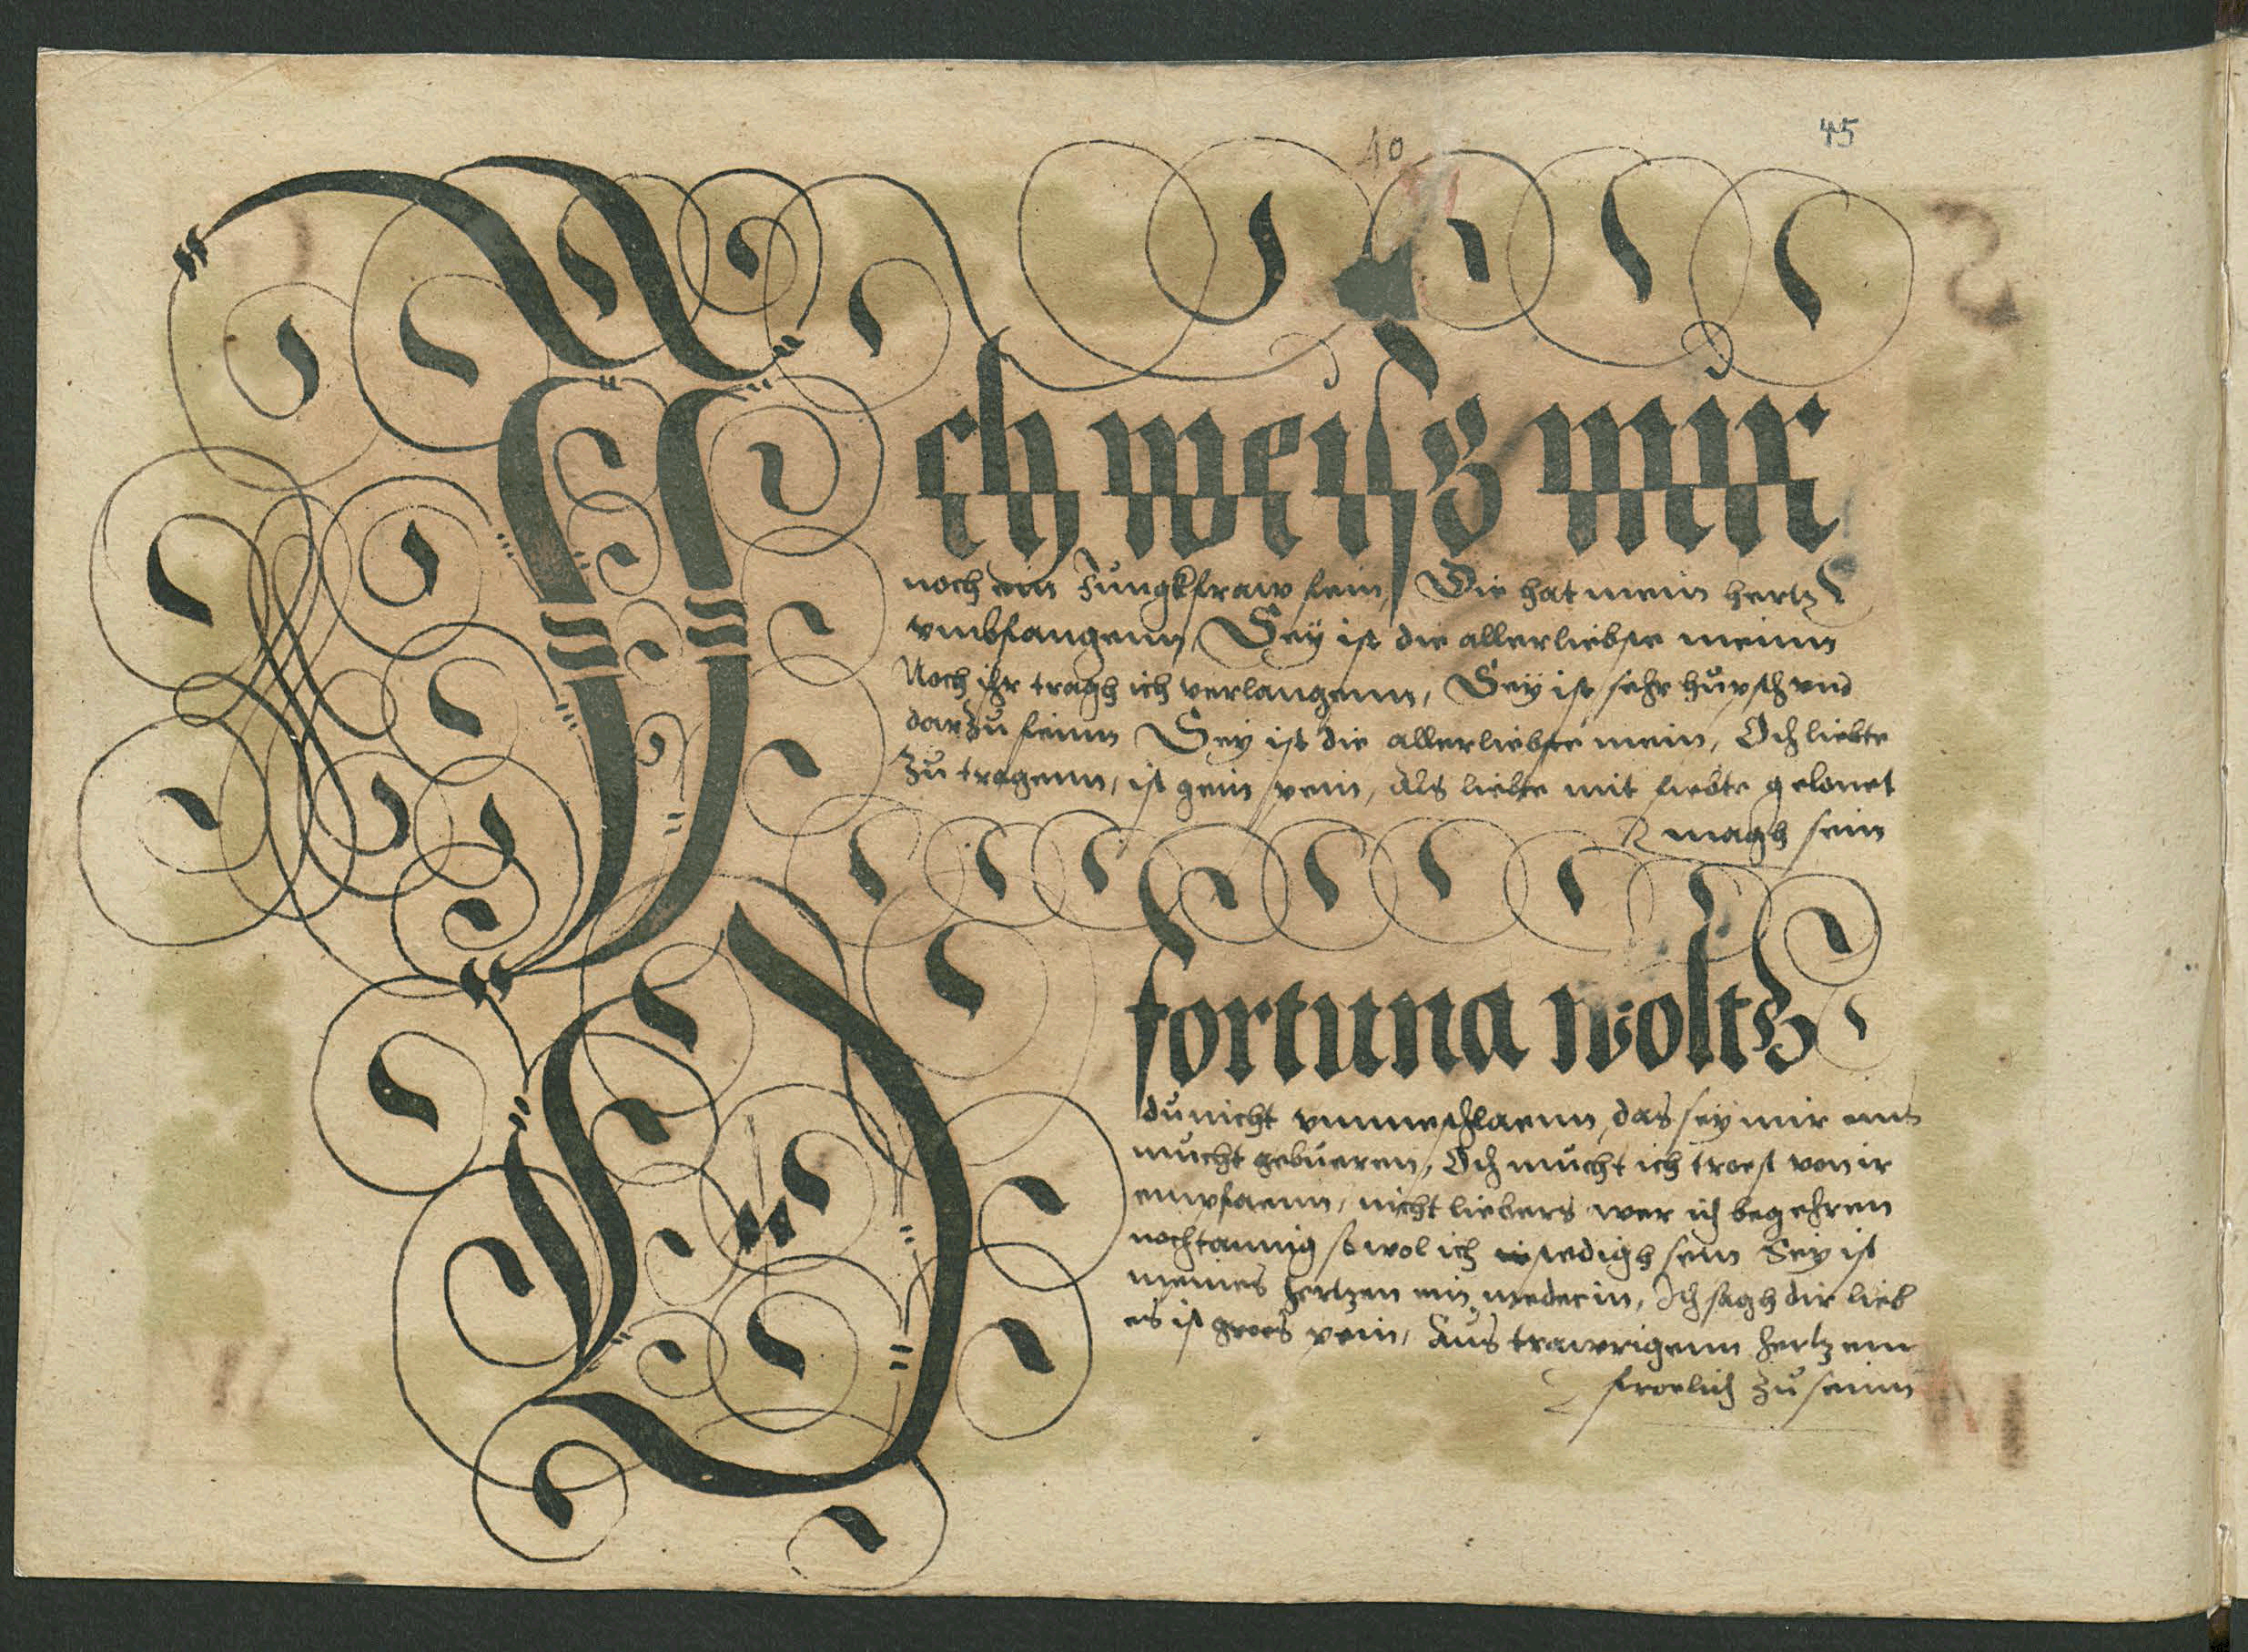 40
45
Ich weisz mir
noch ein Jungkfraw fein, Die hat mein hertz
vmbfangenn, Sey ist die allerliebste meinn
Noch ihr tragh ich verlangenn, Sey ist sehr hüpsch vnd
darzu feinn Sey ist die allerliebste mein, Och liebte
zu tragenn, ist gein pein, Als liebte mit liebte gelonet
magh sein
O fortuna woltz
du nicht vmmeschlaenn, das sey mir ein
mucht gebueren, Och mucht ich troest von ir
empfaenn, nicht liebers wer ich begehren
nochtannig so wol ich stedigh sein Sey ist
meines hertzen ein mederin, Ich sagh dir lieb
es ist groes pein, Aus trawrigenn hertzenn
froelich zu seinn